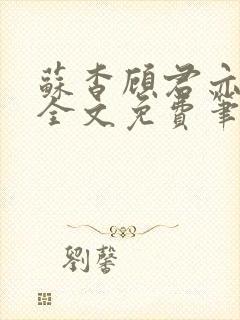 蘇杳顧君亦
全文免費筆
劉馨